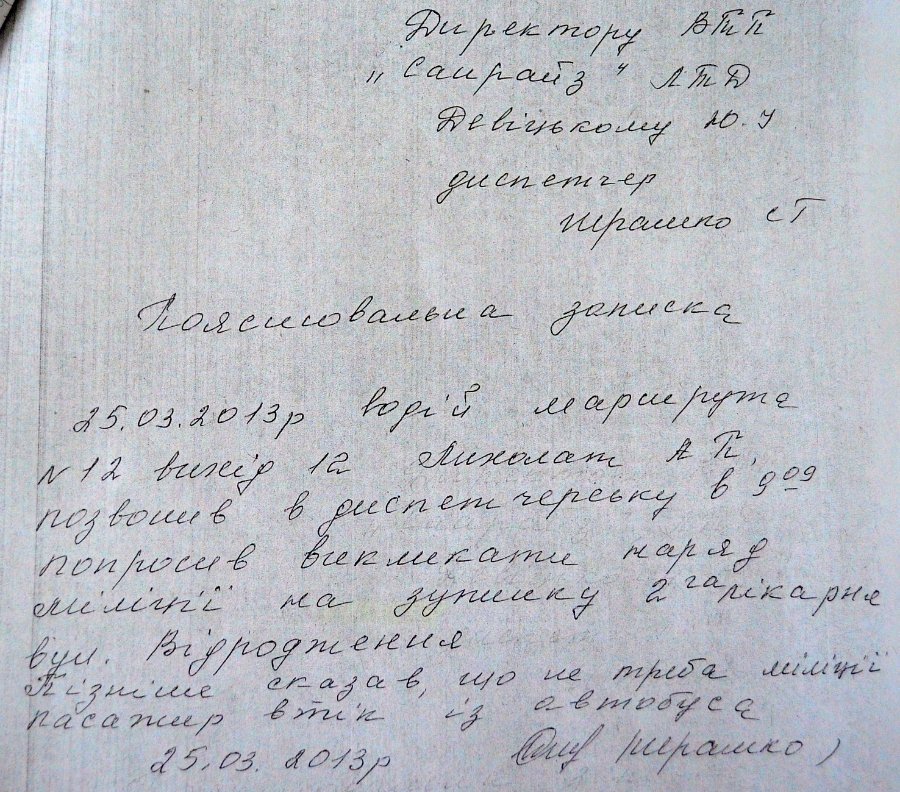 Директору ВТП
„Санрайз“ ЛТД
Девіцькому Ю.У
диспетчер
Шрамко СГ
Пояснювальна записка
25.03.2013р водій маршрута
№12 вихід 12 Лихолат А П,
позвонив в диспетчерську в 9 09
попросив викликати наряд
міліції на зупинку 2га лікарня
вул. Відродження
Пізніше сказав, що не треба міліції
пасажир втік із автобуса
25.03.2013р (Шрамко)